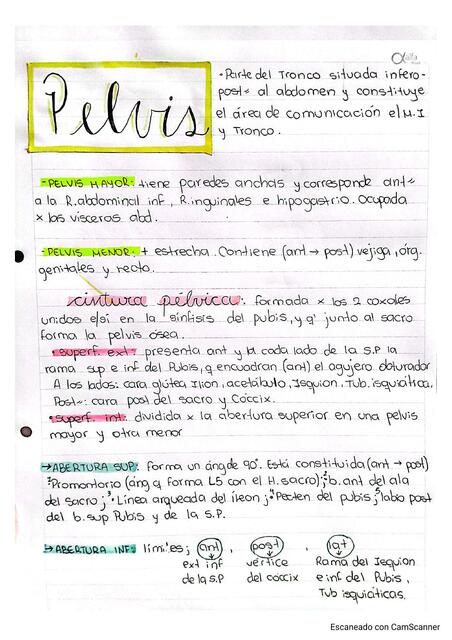 αalfa
Pelvis
• Parte del Tronco situada infero-
post~ al abdomen y constituye
el área de comunicación e/M.I
y Tronco.
- PELVIS MAYOR: tiene paredes anchas y corresponde ant~
a la R. abdominal inf, R. inguinales e hipogastrio. Ocupada
x las vísceras abd.
- PELVIS MENOR: + estrecha. Contiene (ant → post) vejiga, org.
genitales y recto.
cintura pélvica: formada x los 2 coxales
unidos e/si en la sínfisis del pubis, y q' junto al sacro
forma la pelvis ósea.
• superf. ext: presenta ant y la cada lado de la S.P la
rama sup e inf del Pubis, q encuadran (ant) el agujero obturador
A los lados: cara glútea Ilion, acetábulo, Isquion, Tub. isquiática.
Post~: cara post del sacro y Coccix.
• superf. int: dividida x la abertura superior en una pelvis
mayor y otra menor
→ ABERTURA SUP: forma un áng de 90°. Está constituida (ant → post)
¹Promontorio (áng q forma L5 con el H. sacro); ²b. ant del ala
del sacro; ³•Línea arqueada del íleon; ⁴•Pecten del pubis; ⁵labio post
del b. sup Pubis y de la S.P.
→ ABERTURA INF: límites; ant, post, lat
ext inf vértice Rama del Isquion
de la S.P del coccix e inf del Pubis,
Tub isquiáticas.
Escaneado con CamScanner